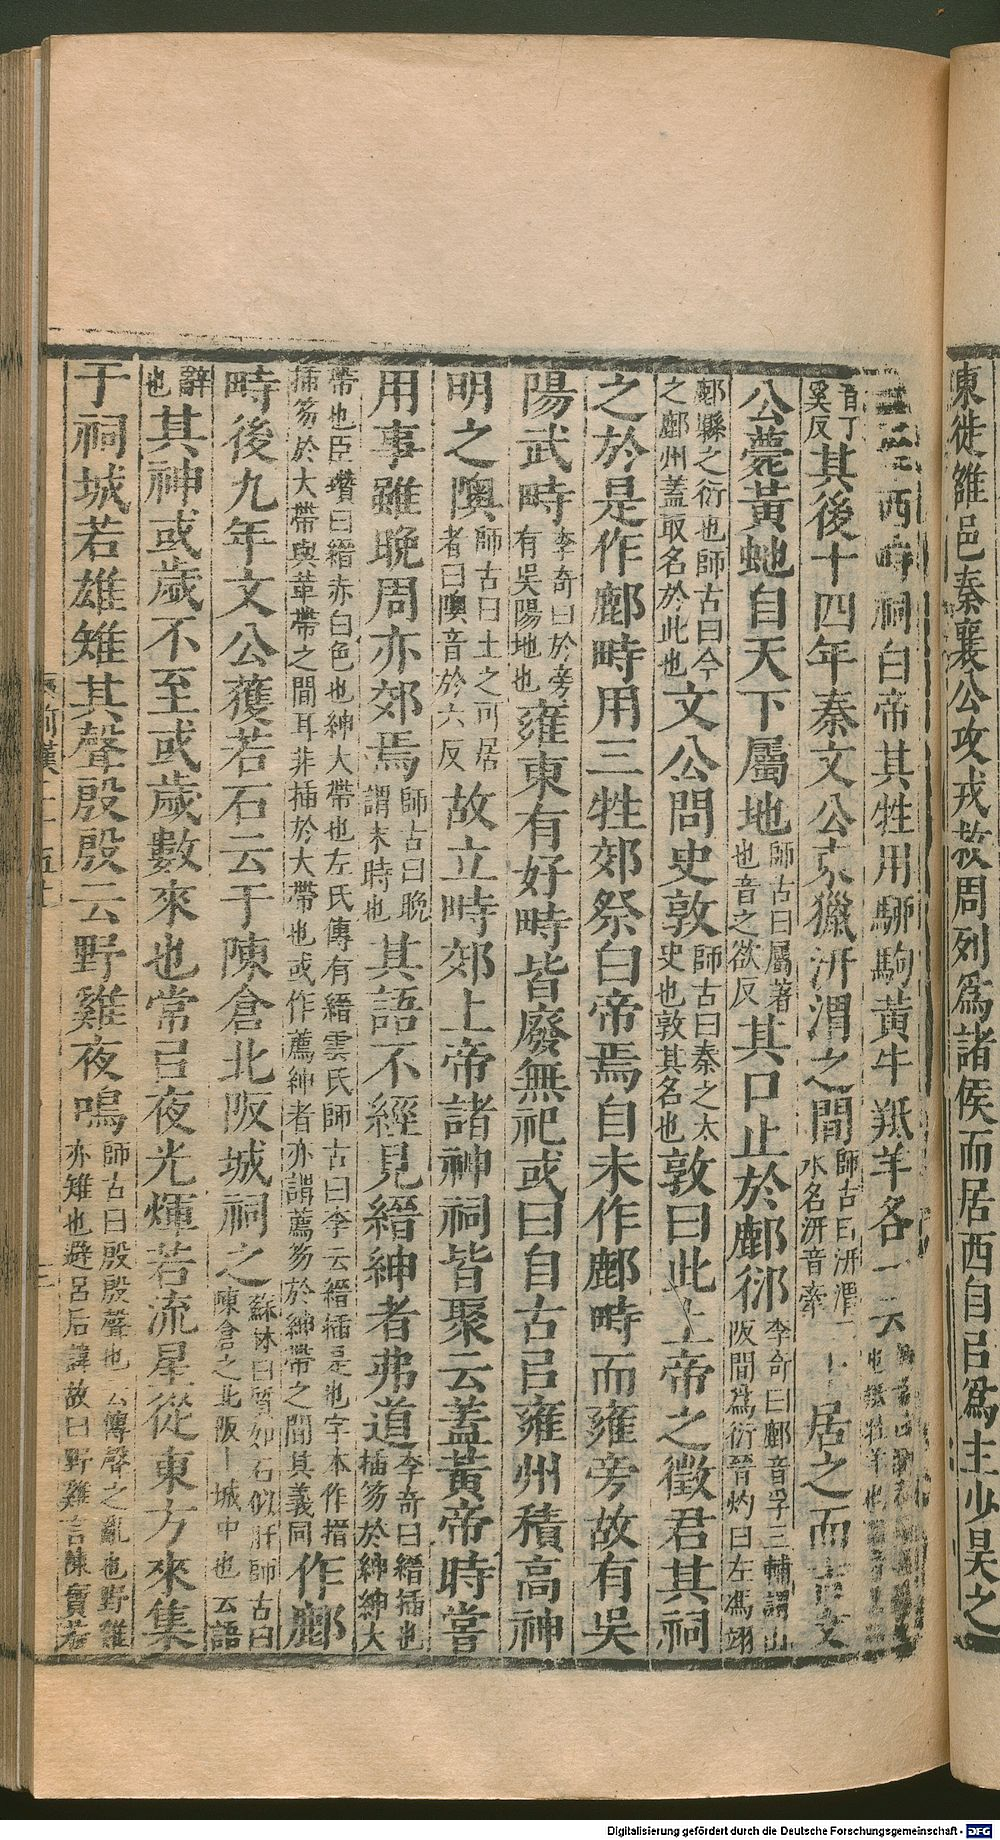 東徙雒邑秦襄公攻戎救周列爲諸侯而居西自㠯爲主少昊之
西畤祠白帝其牲用騮駒黃牛羝羊各一云
奚反其後十四年秦文公東獵汧渭之間師古曰汧渭二水名汧音牽居之而
公薨黃虵自天下屬地師古曰屬著也音之欲反其口止於鄜衍李奇曰鄜音孚三輔謂山阪間爲衍晉灼曰左馮翊
鄜縣之衍也師古曰今之鄜州蓋取名於此也文公問史敦師古曰秦之太史也敦其名也敦曰此上帝之徵君其祠
之於是作鄜畤用三牲郊祭白帝焉自未作鄜畤而雍旁故有吳
陽武畤李奇曰於旁有吳陽地也雍東有好畤皆廢無祀或曰自古㠯雍州積高神
明之隩師古曰土之可居者曰隩音於六反故立畤郊上帝諸神祠皆聚云蓋黃帝時嘗
用事雖晚周亦郊焉師古曰晚謂末時也其語不經見縉紳者弗道李奇曰縉插也插笏於紳紳大
帶也臣瓚曰縉赤白色也紳大帶也左氏傳有縉雲氏師古曰李云縉插是也字本作搢插笏於大帶與革帶之間耳非插於大帶也或作薦紳者亦謂薦笏於紳帶之間其義同作鄜
畤後九年文公獲若石云于陳倉北阪城祠之蘇林曰質如石似肝師古曰陳倉之北阪上城中也云語
辭也其神或歲不至或歲數來也常㠯夜光煇若流星從東方來集
于祠城若雄雉其聲殷殷云野雞夜鳴師古曰殷殷聲也云傳聲之亂也野雞亦雉也避呂后諱故曰野雞言陳寶若
前漢二十五上
Digitalisierung gefördert durch die Deutsche Forschungsgemeinschaft - DFG